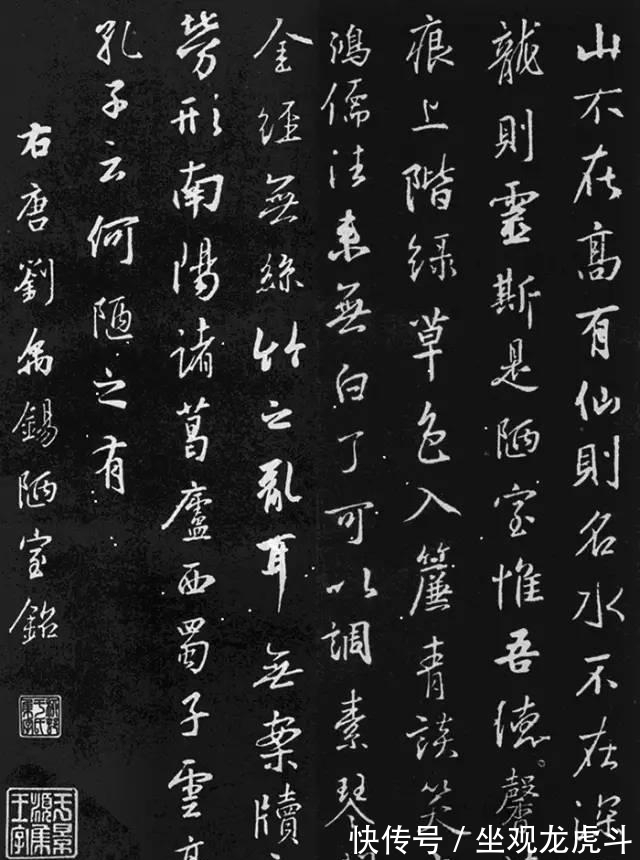 山不在高有仙則名水不在深
龍則靈斯是陋室惟吾德馨
痕上階綠草色入簾青談笑
鴻儒往來無白丁可以調素琴
金經無絲竹之亂耳無案牘
勞形南陽諸葛廬西蜀子雲亭
孔子云何陋之有
右唐劉禹錫陋室銘
快传号 / 坐观龙虎斗